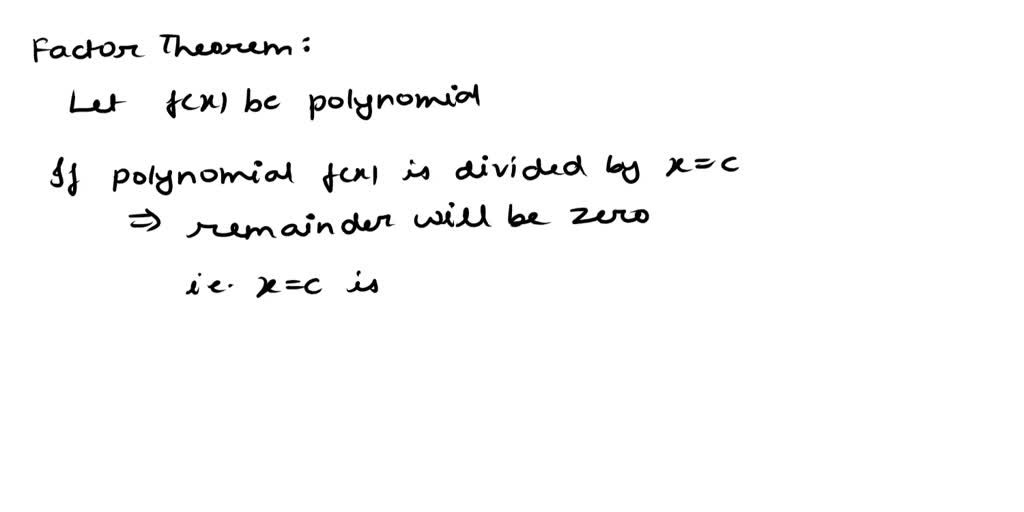 Factor Theorem:
Let f(x) be polynomial
If polynomial f(x) is divided by x=c
⇒ remainder will be zero
i.e. x=c is